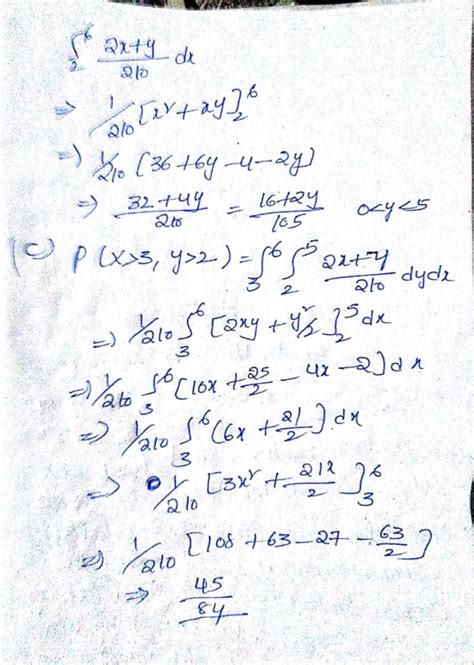 ∫₂⁶ (2x+y)/210 dx
⇒ 1/210 [x² + xy]₂⁶
⇒ 1/210 (36+6y-4-2y)
⇒ (32+4y)/210 = (16+2y)/105 0<y<5
(c) P(X>3, y>2) = ∫₃⁶ ∫₂⁵ (2x+y)/210 dydx
⇒ 1/210 ∫₃⁶ [2xy + y²/2]₂⁵ dx
⇒ 1/210 ∫₃⁶ [10x + 25/2 - 4x - 2] dx
⇒ 1/210 ∫₃⁶ (6x + 21/2] dx
⇒ 1/210 [3x² + 21x/2]₃⁶
⇒ 1/210 [108 + 63 - 27 - 63/2]
⇒ 45/84